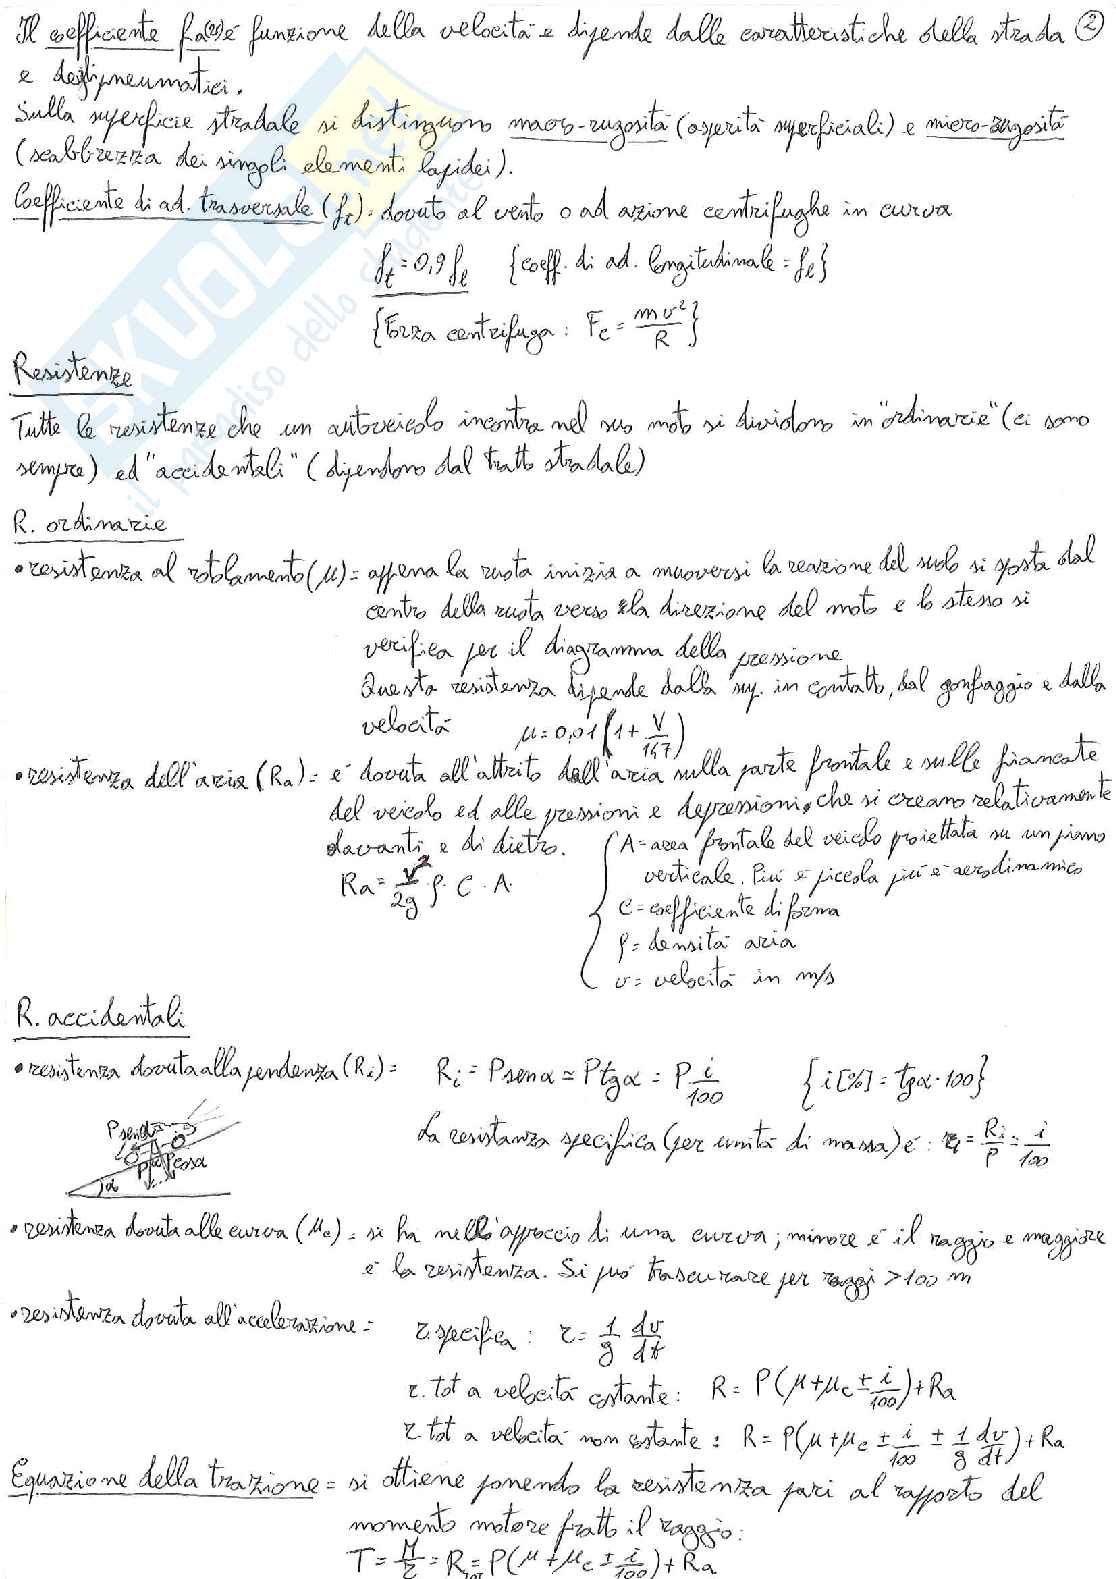 Il coefficiente fa(v) é funzione della velocitá e dipende dalle caratteristiche della strada ②
e degli pneumatici.
Sulla superficie stradale si distinguono macro-rugositá (asperitá superficiali) e micro-rugositá
(scabbrezza dei singoli elementi lapidei).
Coefficiente di ad. trasversale (ft)= dovuto al vento o ad azione centrifughe in curva
ft = 0,9 fl {coeff. di ad. longitudinale = fl}
{Forza centrifuga : Fc = mv²/R}
Resistenze
Tutte le resistenze che un autoveicolo incontra nel suo moto si dividono in "ordinarie" (ci sono
sempre) ed "accidentali" (dipendono dal tratto stradale)
R. ordinarie
• resistenza al rotolamento (μ) = appena la ruota inizia a muoversi la reazione del suolo si sposta dal
centro della ruota verso la direzione del moto e lo stesso si
verifica per il diagramma della pressione
Questa resistenza dipende dalla sup. in contatto, dal gonfiaggio e dalla
velocitá μ = 0,01 (1 + V/147)
• resistenza dell'aria (Ra) = é dovuta all'attrito dell'aria sulla parte frontale e sulle fiancate
del veicolo ed alle pressioni e depressioni, che si creano relativamente
davanti e di dietro.
A = area frontale del veicolo proiettata su un piano
verticale. Piú é piccola piú é aerodinamico
Ra = v²/2g · ρ · C · A.
C = coefficiente di forma
ρ = densitá aria
v = velocitá in m/s
R. accidentali
• resistenza dovuta alla pendenza (Ri) = Ri = P sen α ≃ P tg α = P i/100 {i[%] = tg α · 100}
P senα
P cosα
α
La resistanza specifica (per unitá di massa) é : ri = Ri/P = i/100
• resistenza dovuta alle curva (μc) = si ha nell'approccio di una curva ; minore é il raggio e maggiore
é la resistenza. Si puó trascurare per raggi > 100 m
• resistenza dovuta all'accelerazione = r. specifica : r = 1/g dv/dt
r. tot a velocitá costante : R = P(μ + μc ± i/100) + Ra
r. tot a velocitá non costante : R = P(μ + μc ± i/100 ± 1/g dv/dt) + Ra
Equazione della trazione = si ottiene ponendo la resistenza pari al rapporto del
momento motore fratto il raggio :
T = M/r = Rtot = P(μ + μc ± i/100) + Ra
SKUOLA.net
il paradiso dello studente